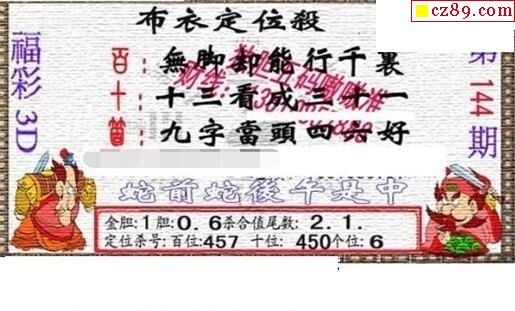 cz89.com
布衣定位殺
福彩3D
第144期
百:無脚却能行千裏
十:十三看成三十一
個:九字當頭四六好
蛇前蛇後午是中
金胆:1胆:0.6杀合值尾数:2.1.
定位杀号:百位:457 十位:450个位:6